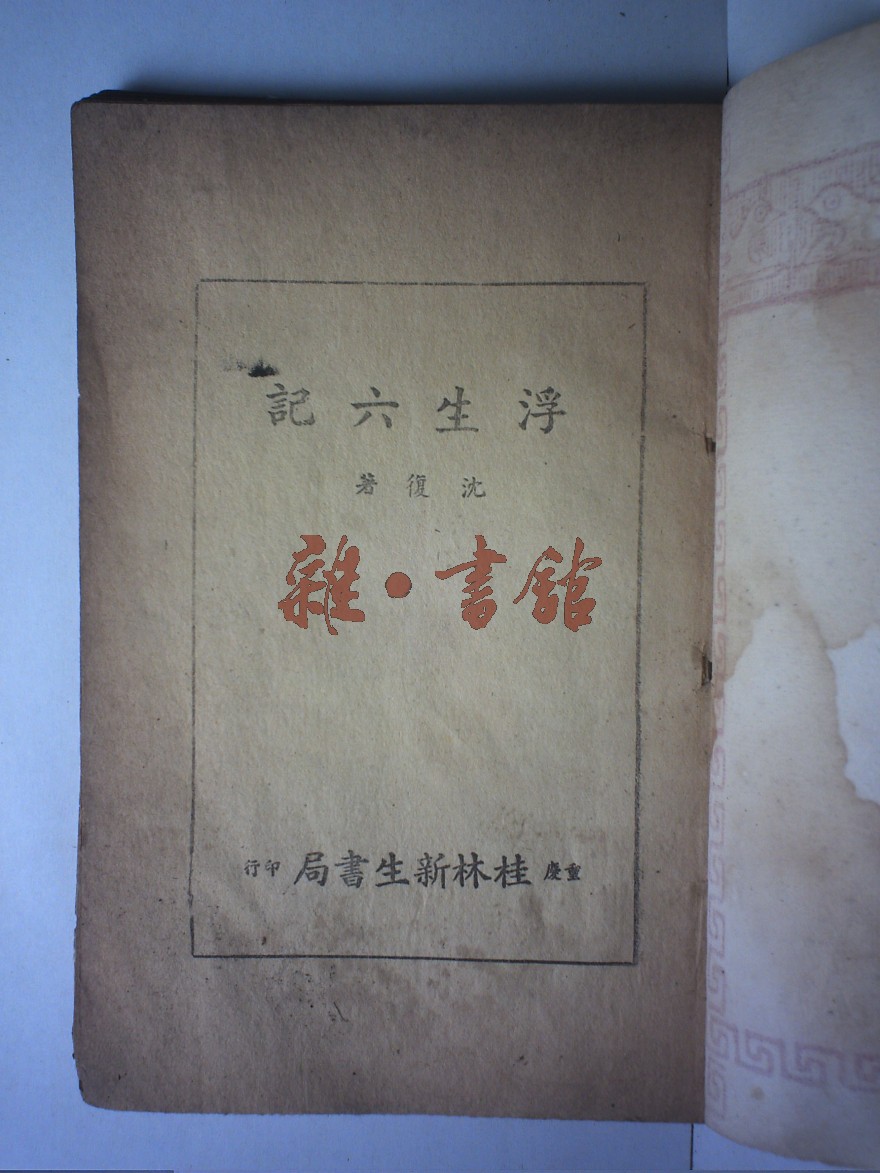 浮生六記
沈復著
雜·書館
重慶桂林新生書局印行